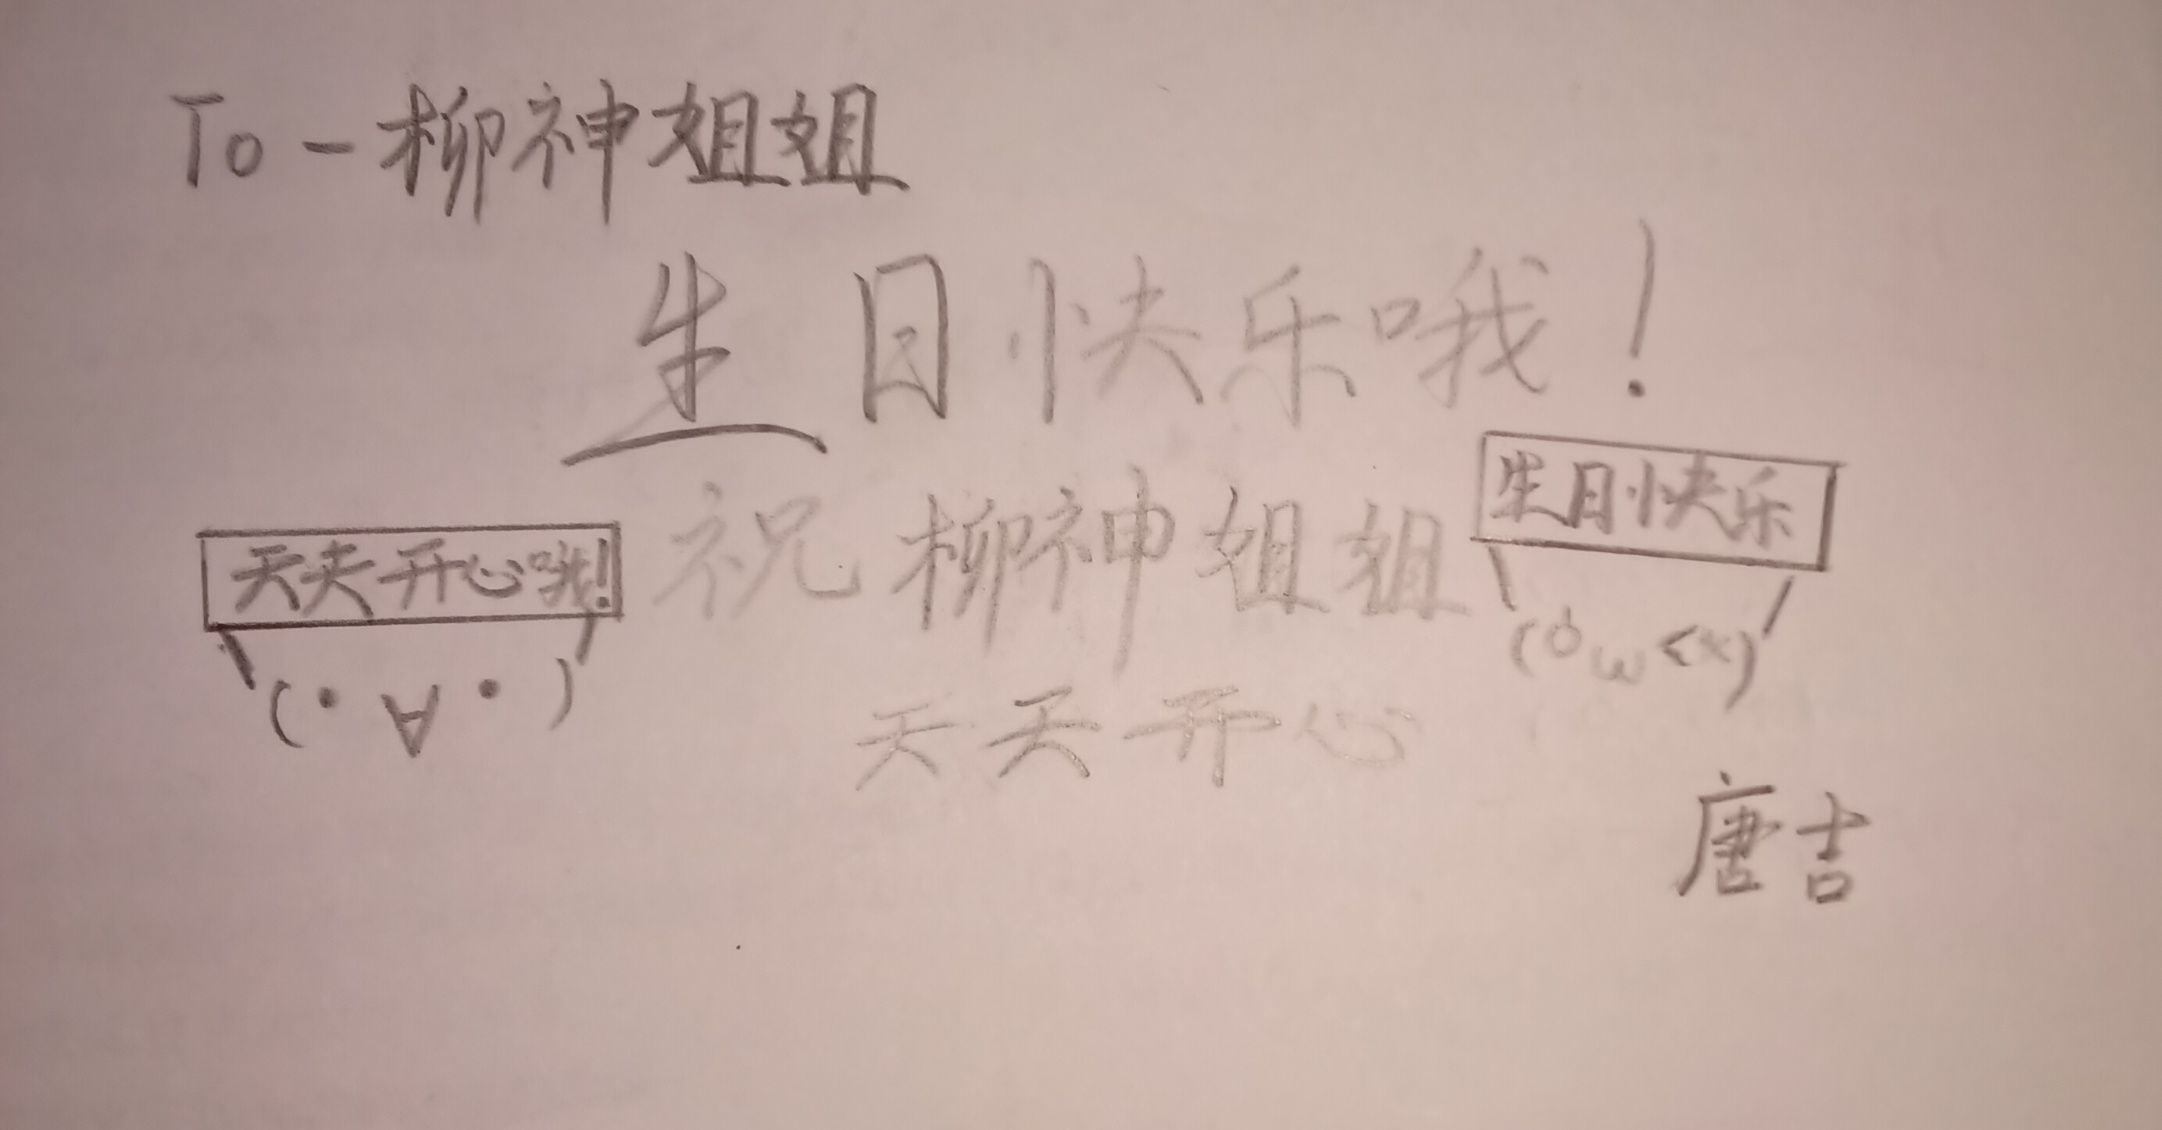 To-柳神姐姐
生日快乐哦!
祝柳神姐姐
天天开心
天天开心哦!
(· ∀ ·)
生日快乐
唐吉